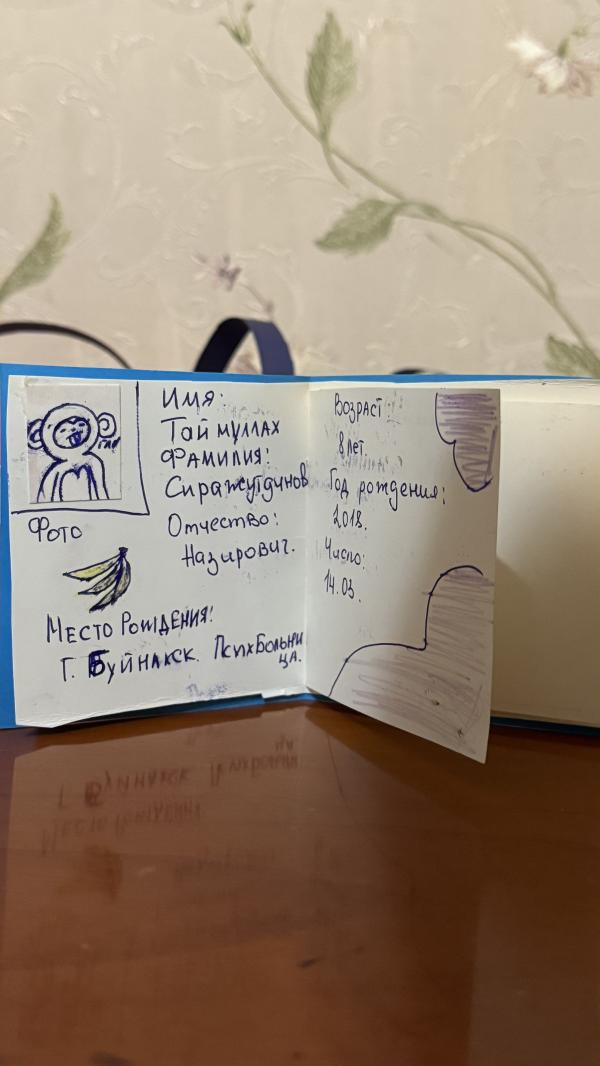 Имя:
Таймуллах
Фамилия:
Сиражутдинов
Отчество:
Назирович.
Фото
Место Рождения:
Г. Буйнакск. Психбольни
ца.
Возраст:
8 лет.
Год рождения:
2018.
Число:
14.03.